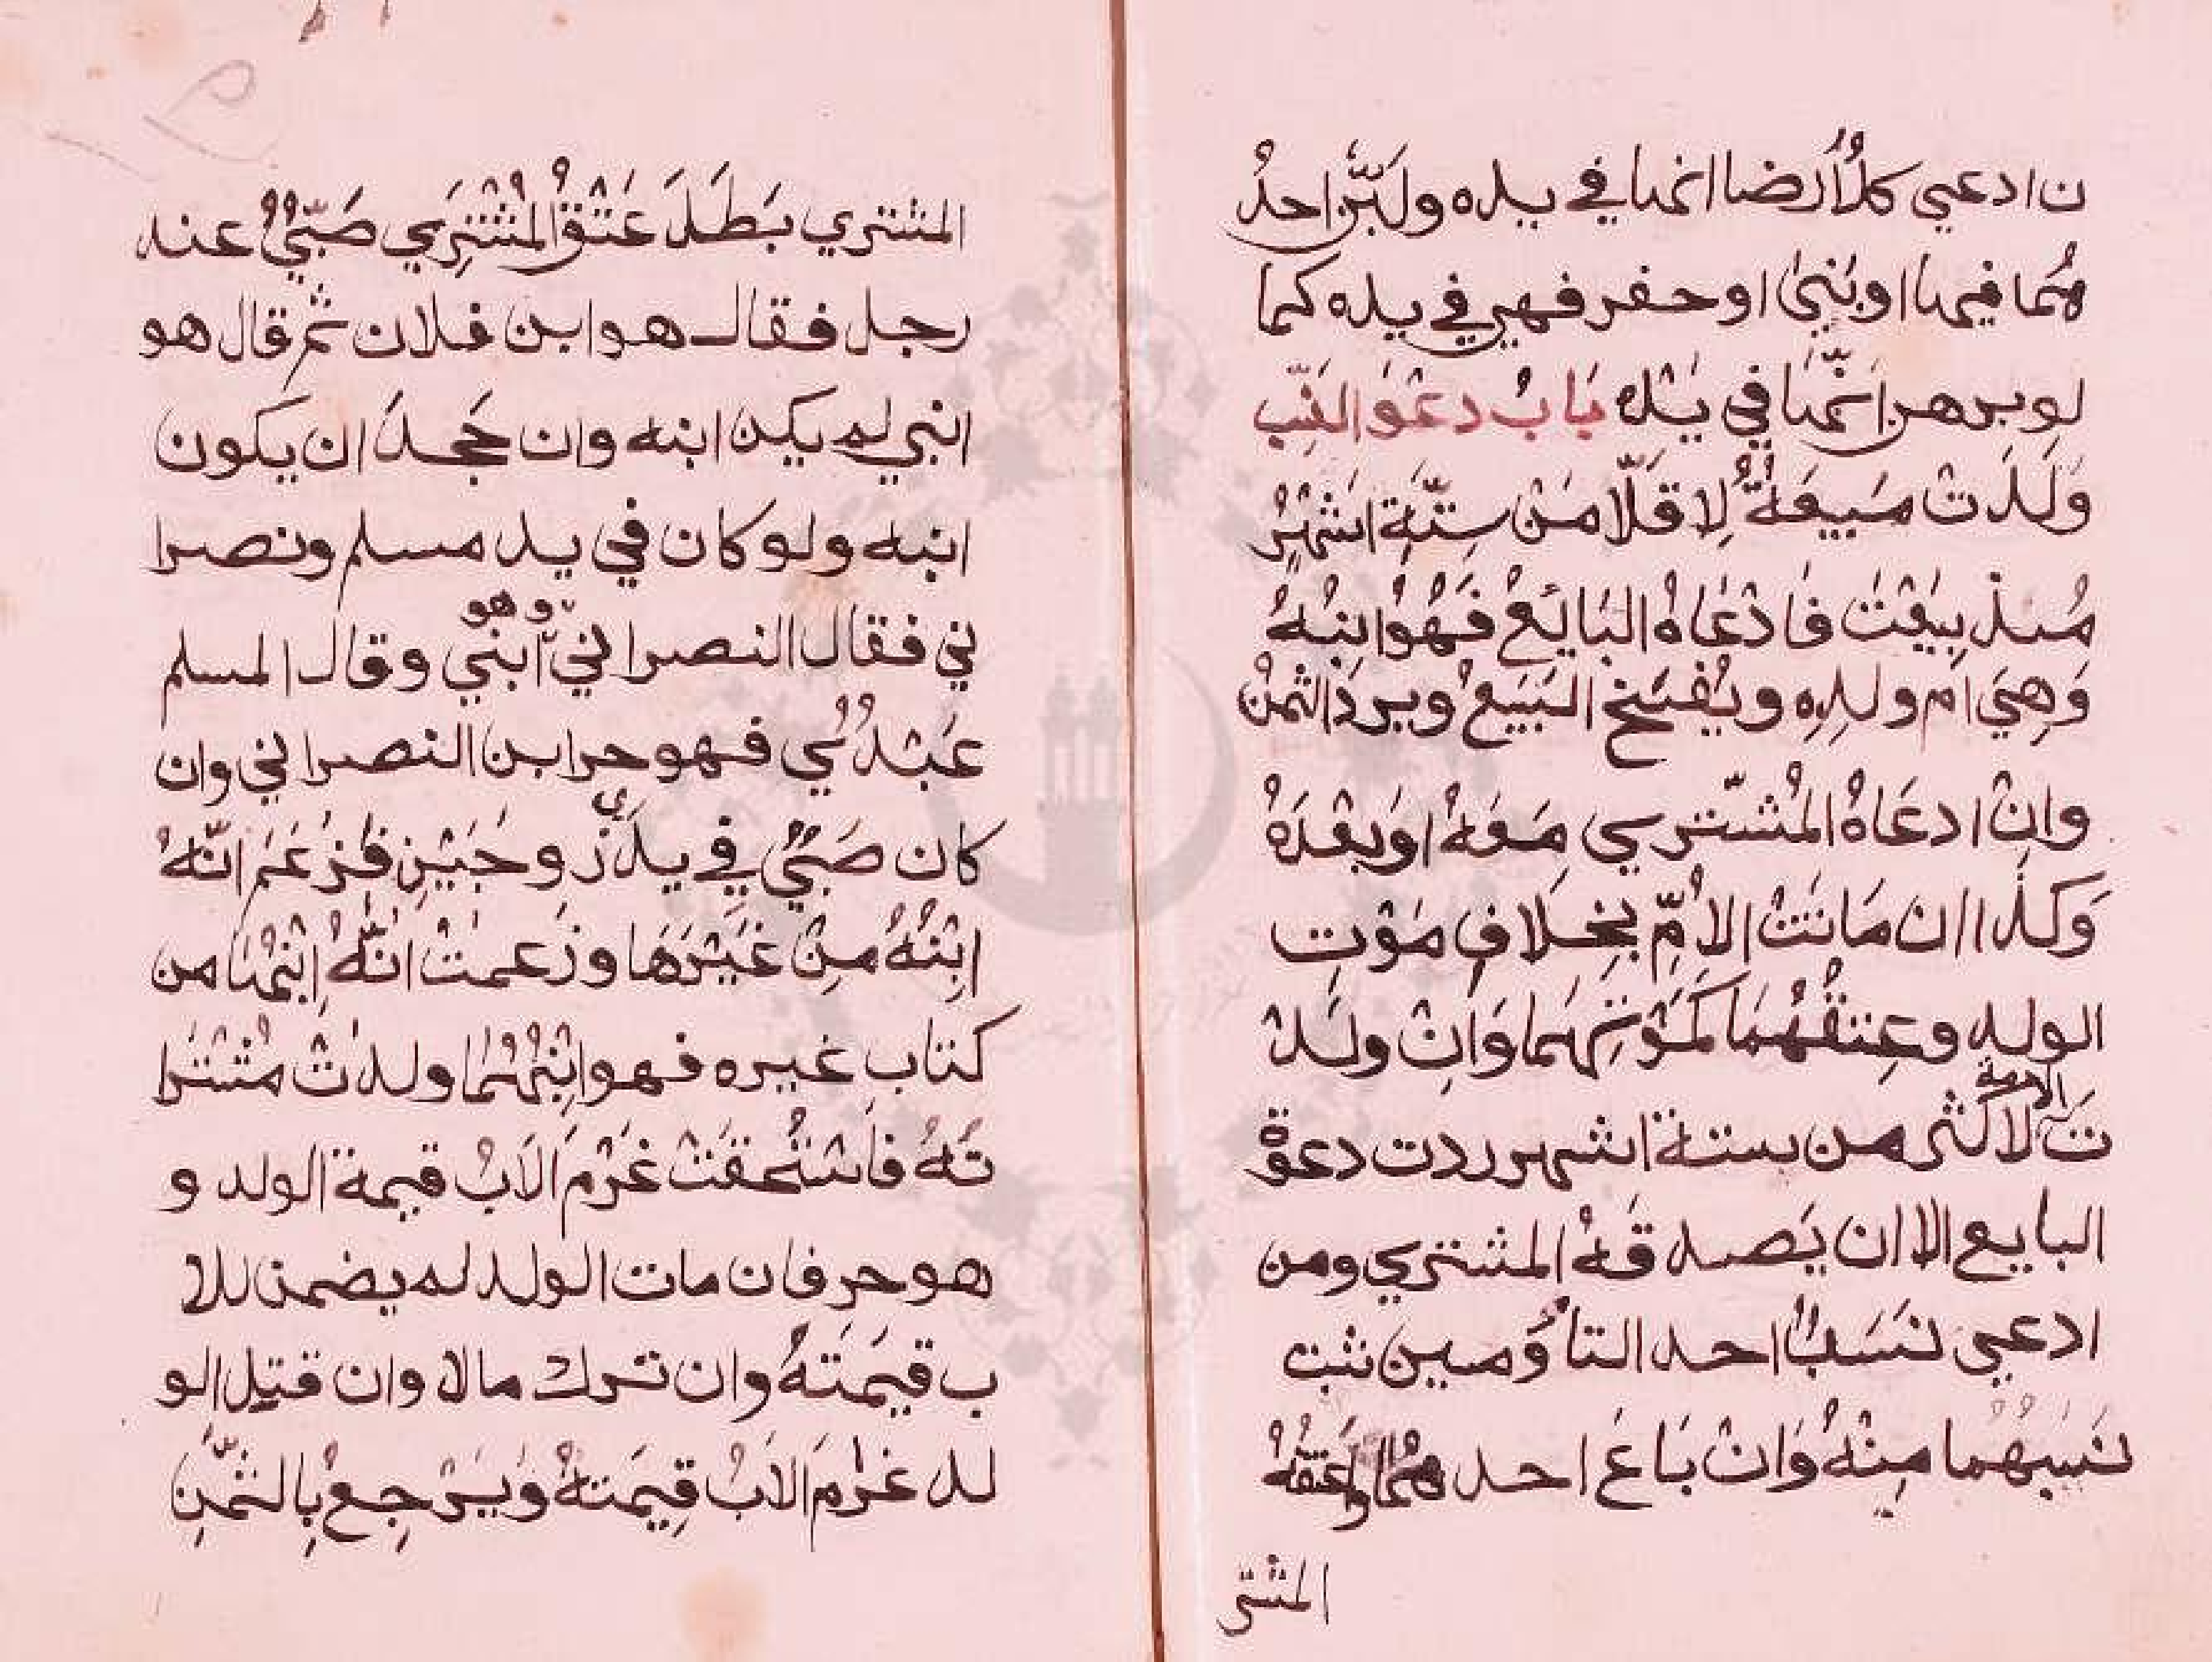 ن ادعي كلُّ أرضا انها في يده ولبّن احدُ
هُما فيها او بُنيٰ او حفر فهي في يده كما
لو برهن انّها في يَدْه بَابُ دعْوَ النّسَب
وَلَدَتْ مَبِيعَةٌ لِاقلّا مَنْ ستّةِ اشْهُرٍ
مُنذ بِيعْتْ فادْعَاهُ البَايعُ فَهُوَ ابنُهُ
وَهِيَ ام ولدِهِ ويُفْسَخ البَيَعُ ويرد الثمنْ
وانْ ادعَاهُ المُشْتري مَعَهُ اوَبعْدَهُ
وَكذا ان مَاتَتْ الاُمّ بِخِلافِ مَوْتِ
الولد وعِتقُهُمَا كَمَوْتِهِما وَانْ ولدْ
تَ الامة لاكثر من ستة اشهر ردت دعوة
البايع الا ان يَصد قَهُ المشتري ومن
ادعي نسَبُ احد التاُوَمين ثبت
نَسبهُما مِنْهُ وَانْ بَاعَ احد هُما واعتقهُ
المشتر
المشتري بَطَلَ عَتْقُ المُشْتَرِي صَبّيٌ عند
رجل فقال هو ابن فلان ثم قال هو
ابني لم يكن ابنه وان جَحدَ ان يكون
ابنه ولو كان في يد مسلم ونصرا
ني فقال النصرانيّ وهو ابني وقال المسلم
عَبْدُيُ فهو حر ابن النصراني وان
كان صَبيٌ في يدي زوجَيْنِ فزُعَمَ انّهُ
ابِنْهُ مِنْ غَيْرَهَا وزَعمتْ انّهُ ابْنُها من
كتاب غيره فهو ابنْهُمُا ولدتْ مُشْتَرا
تَهُ فاسْتُحقتْ غَرْمَ الاَبُ قيمة الولد و
هو حر فان مات الولد لم يضمن للا
ب قيمَتَهُ وان ترك مالا وان قتل الو
لد غرٰمَ الاَبُ قِيمَتهُ وَيَرْجِعُ بِالثمّنِ